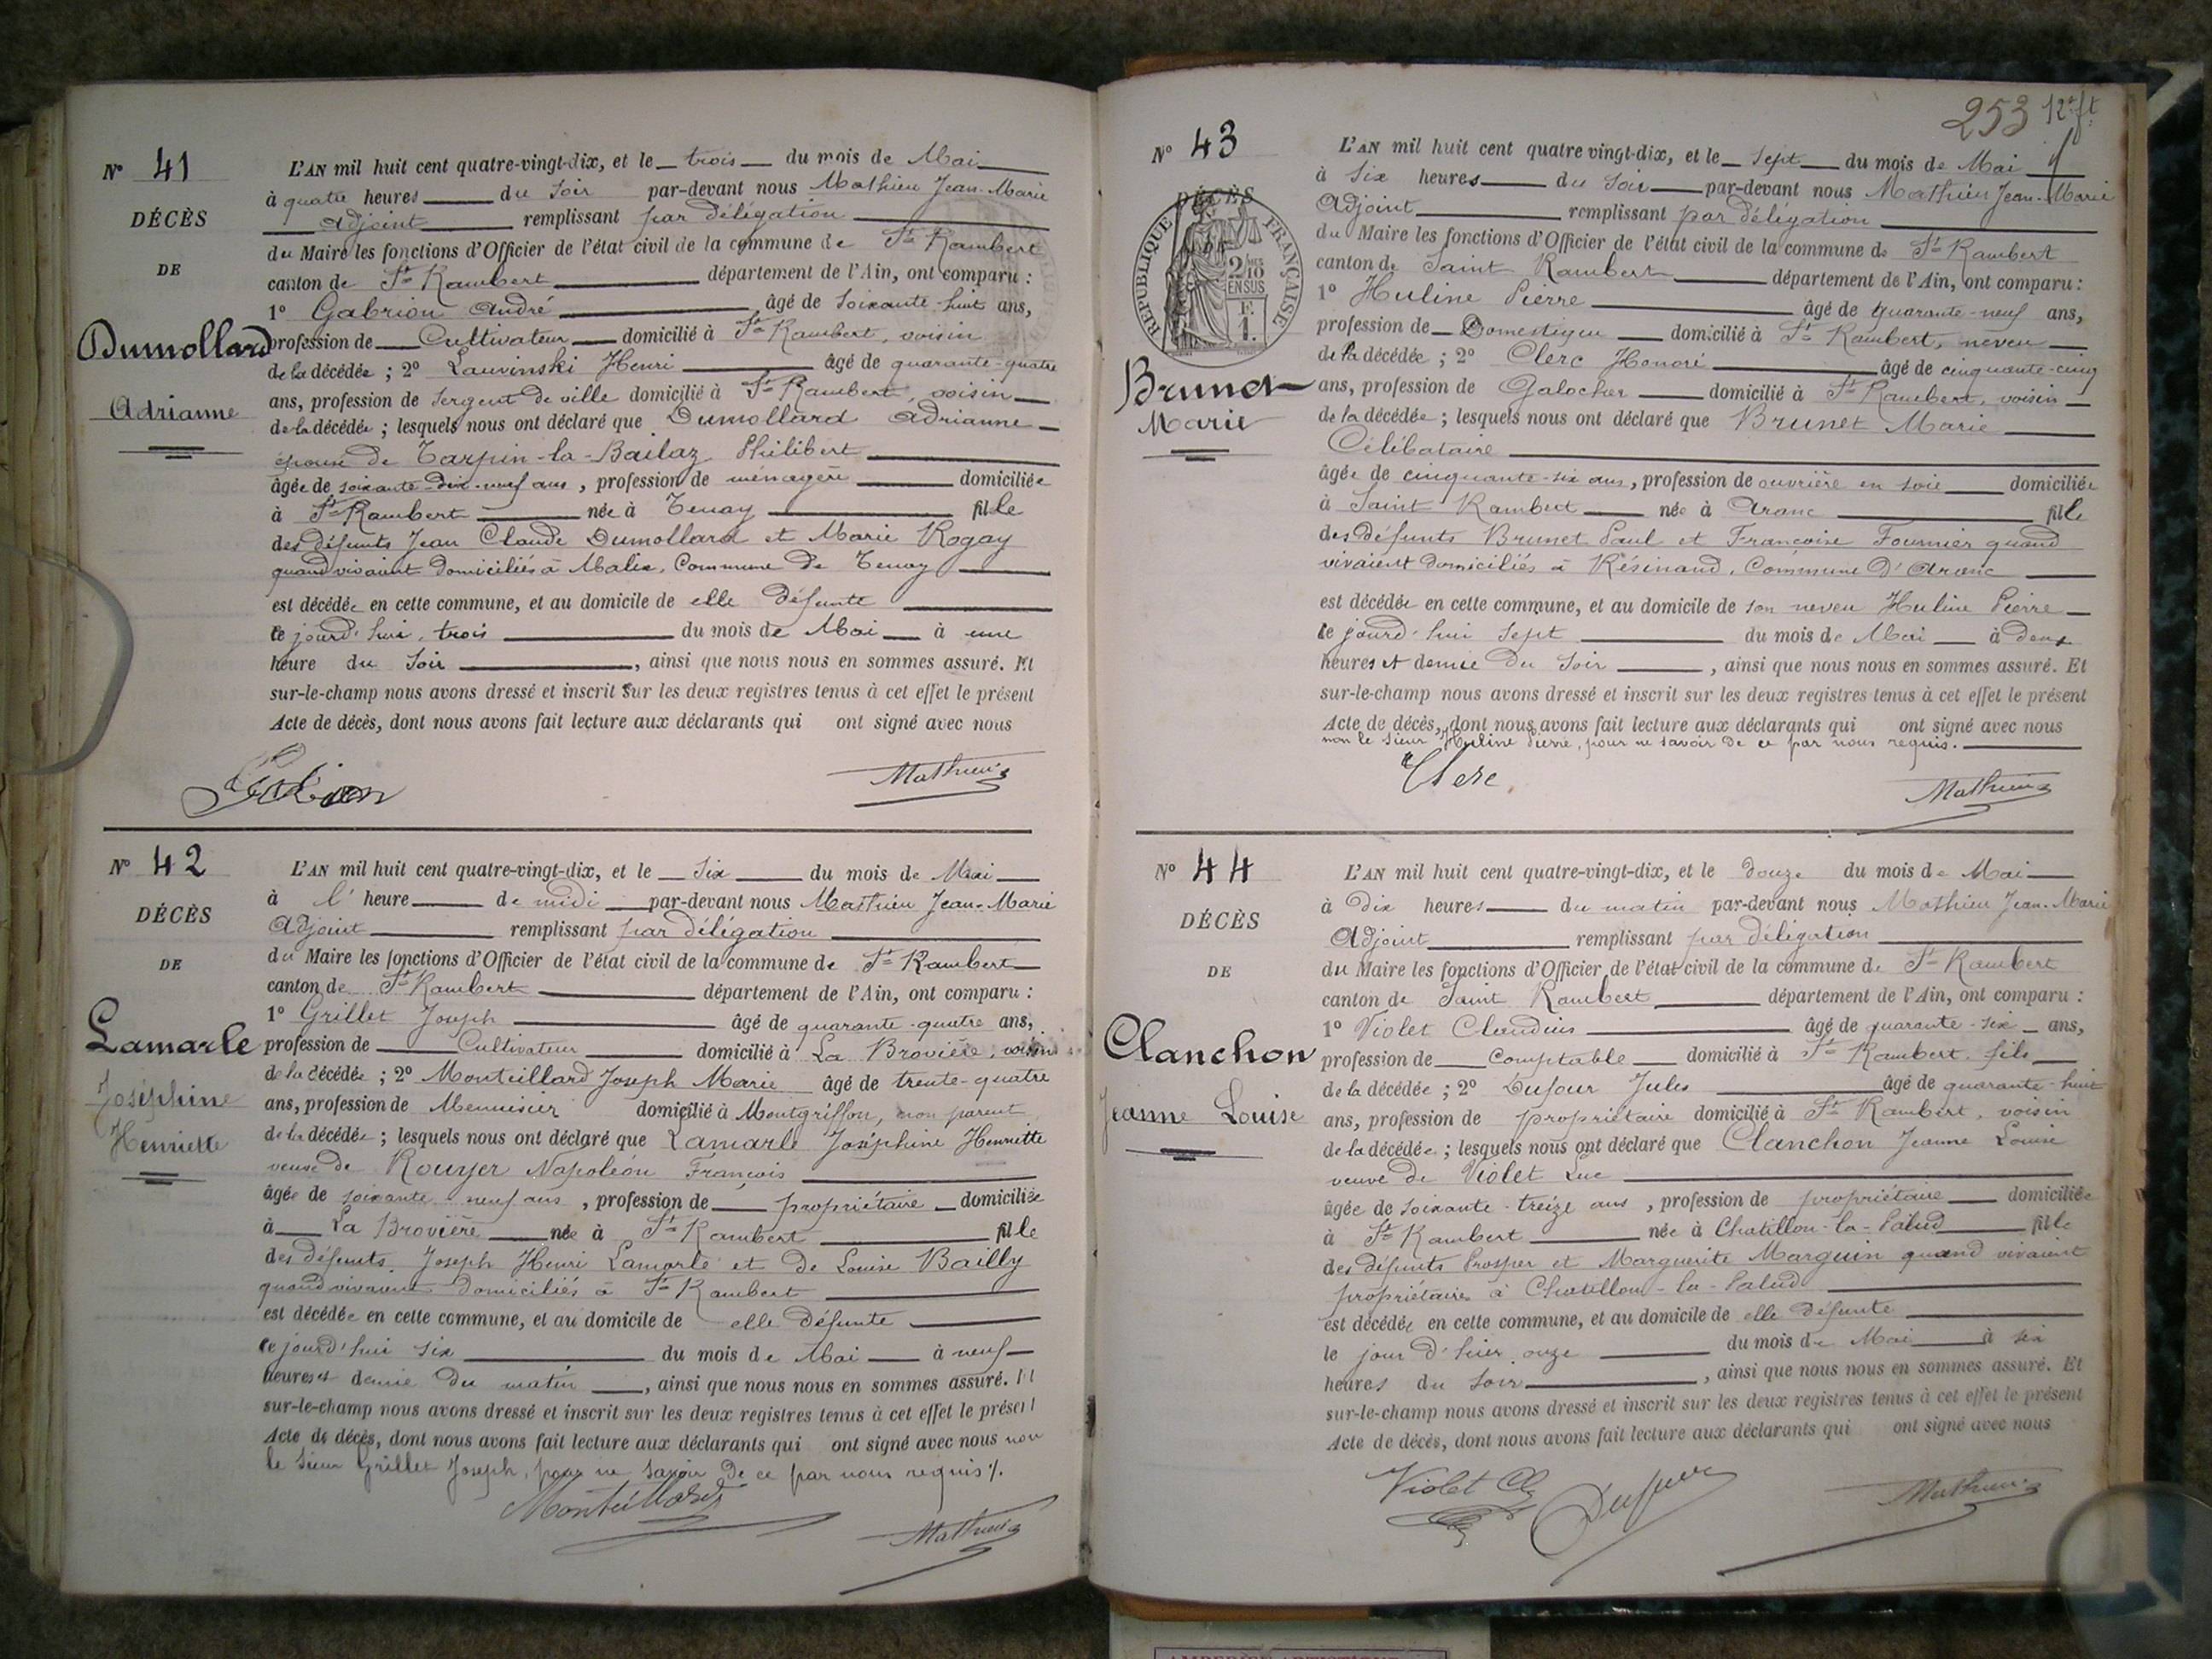 N° 41
DÉCÈS
DE
Dumollard
Adrianne
L'AN mil huit cent quatre-vingt-dix, et le trois du mois de Mai
à quatre heures du soir par-devant nous Mathieu Jean-Marie
Adjoint remplissant par délégation
du Maire les fonctions d'Officier de l'état civil de la commune de St Rambert
canton de St Rambert département de l'Ain, ont comparu :
1° Gabrion André âgé de soixante-huit ans,
profession de Cultivateur domicilié à St Rambert, voisin
de la décédée ; 2° Lauvinski Henri âgé de quarante-quatre
ans, profession de Sergent de ville domicilié à St Rambert, voisin
de la décédée ; lesquels nous ont déclaré que Dumollard Adrianne
épouse de Tarpin-la-Bailaz Philibert
âgée de soixante-dix-neuf ans, profession de ménagère domiciliée
à St Rambert née à Tenay fille
des défunts Jean Claude Dumollard et Marie Rogay
quand vivaient domiciliés à Malix, Commune de Tenay
est décédée en cette commune, et au domicile de elle défunte
ce jourd'hui, trois du mois de Mai à une
heure du soir, ainsi que nous nous en sommes assuré. Et
sur-le-champ nous avons dressé et inscrit sur les deux registres tenus à cet effet le présent
Acte de décès, dont nous avons fait lecture aux déclarants qui ont signé avec nous
Gabrion Mathieu
N° 42
DÉCÈS
DE
Lamarle
Joséphine
Henriette
L'AN mil huit cent quatre-vingt-dix, et le six du mois de Mai
à l' heure de midi par-devant nous Mathieu Jean-Marie
Adjoint remplissant par délégation
du Maire les fonctions d'Officier de l'état civil de la commune de St Rambert
canton de St Rambert département de l'Ain, ont comparu :
1° Grillet Joseph âgé de quarante-quatre ans,
profession de Cultivateur domicilié à La Brovière, voisin
de la décédée ; 2° Monteillard Joseph Marie âgé de trente-quatre
ans, profession de Menuisier domicilié à Montgriffon, non parent
de la décédée ; lesquels nous ont déclaré que Lamarle Joséphine Henriette
veuve de Rouyer Napoléon François
âgée de soixante neuf ans, profession de propriétaire domiciliée
à La Brovière née à St Rambert fille
des défunts Joseph Henri Lamarle et de Louise Bailly
quand vivaient domiciliés à St Rambert
est décédée en cette commune, et au domicile de elle défunte
ce jourd'hui six du mois de Mai à neuf
heures et demie du matin, ainsi que nous nous en sommes assuré. Et
sur-le-champ nous avons dressé et inscrit sur les deux registres tenus à cet effet le présent
Acte de décès, dont nous avons fait lecture aux déclarants qui ont signé avec nous non
le sieur Grillet Joseph, pour ne savoir de ce par nous requis ./.
Monteillard Mathieu
253 12e ft
N° 43
DÉCÈS
RÉPUBLIQUE FRANÇAISE
2/10 EN SUS
F. 1.
Brunet
Marie
L'AN mil huit cent quatre vingt-dix, et le sept du mois de Mai
à six heures du soir par-devant nous Mathieu Jean-Marie
Adjoint remplissant par délégation
du Maire les fonctions d'Officier de l'état civil de la commune de St Rambert
canton de Saint Rambert département de l'Ain, ont comparu :
1° Huline Pierre âgé de quarante-neuf ans,
profession de Domestique domicilié à St Rambert, neveu
de la décédée ; 2° Clerc Honoré âgé de cinquante-cinq
ans, profession de Galocher domicilié à St Rambert, voisin
de la décédée ; lesquels nous ont déclaré que Brunet Marie
Célibataire
âgée de cinquante-six ans, profession de ouvrière en soie domiciliée
à Saint Rambert née à Aranc fille
des défunts Brunet Paul et Françoise Fournier quand
vivaient domiciliés à Résinand, Commune d'Aranc
est décédée en cette commune, et au domicile de son neveu Huline Pierre
ce jourd'hui sept du mois de Mai à deux
heures et demie du soir, ainsi que nous nous en sommes assuré. Et
sur-le-champ nous avons dressé et inscrit sur les deux registres tenus à cet effet le présent
Acte de décès, dont nous avons fait lecture aux déclarants qui ont signé avec nous
non le sieur Huline Pierre, pour ne savoir de ce par nous requis.
Clerc Mathieu
N° 44
DÉCÈS
DE
Clanchon
Jeanne Louise
L'AN mil huit cent quatre-vingt-dix, et le douze du mois de Mai
à dix heures du matin par-devant nous Mathieu Jean-Marie
Adjoint remplissant par délégation
du Maire les fonctions d'Officier de l'état civil de la commune de St Rambert
canton de Saint Rambert département de l'Ain, ont comparu :
1° Violet Claudius âgé de quarante-six ans,
profession de Comptable domicilié à St Rambert, fils
de la décédée ; 2° Dufour Jules âgé de quarante-huit
ans, profession de propriétaire domicilié à St Rambert, voisin
de la décédée ; lesquels nous ont déclaré que Clanchon Jeanne Louise
veuve de Violet Luc
âgée de soixante-treize ans, profession de propriétaire domiciliée
à St Rambert née à Chatillon-la-Palud fille
des défunts Prosper et Marguerite Marguin quand vivaient
propriétaires à Chatillon-la-Palud
est décédée en cette commune, et au domicile de elle défunte
le jour d'hier onze du mois de Mai à six
heures du soir, ainsi que nous nous en sommes assuré. Et
sur-le-champ nous avons dressé et inscrit sur les deux registres tenus à cet effet le présent
Acte de décès, dont nous avons fait lecture aux déclarants qui ont signé avec nous
Violet Cl Dufour Mathieu